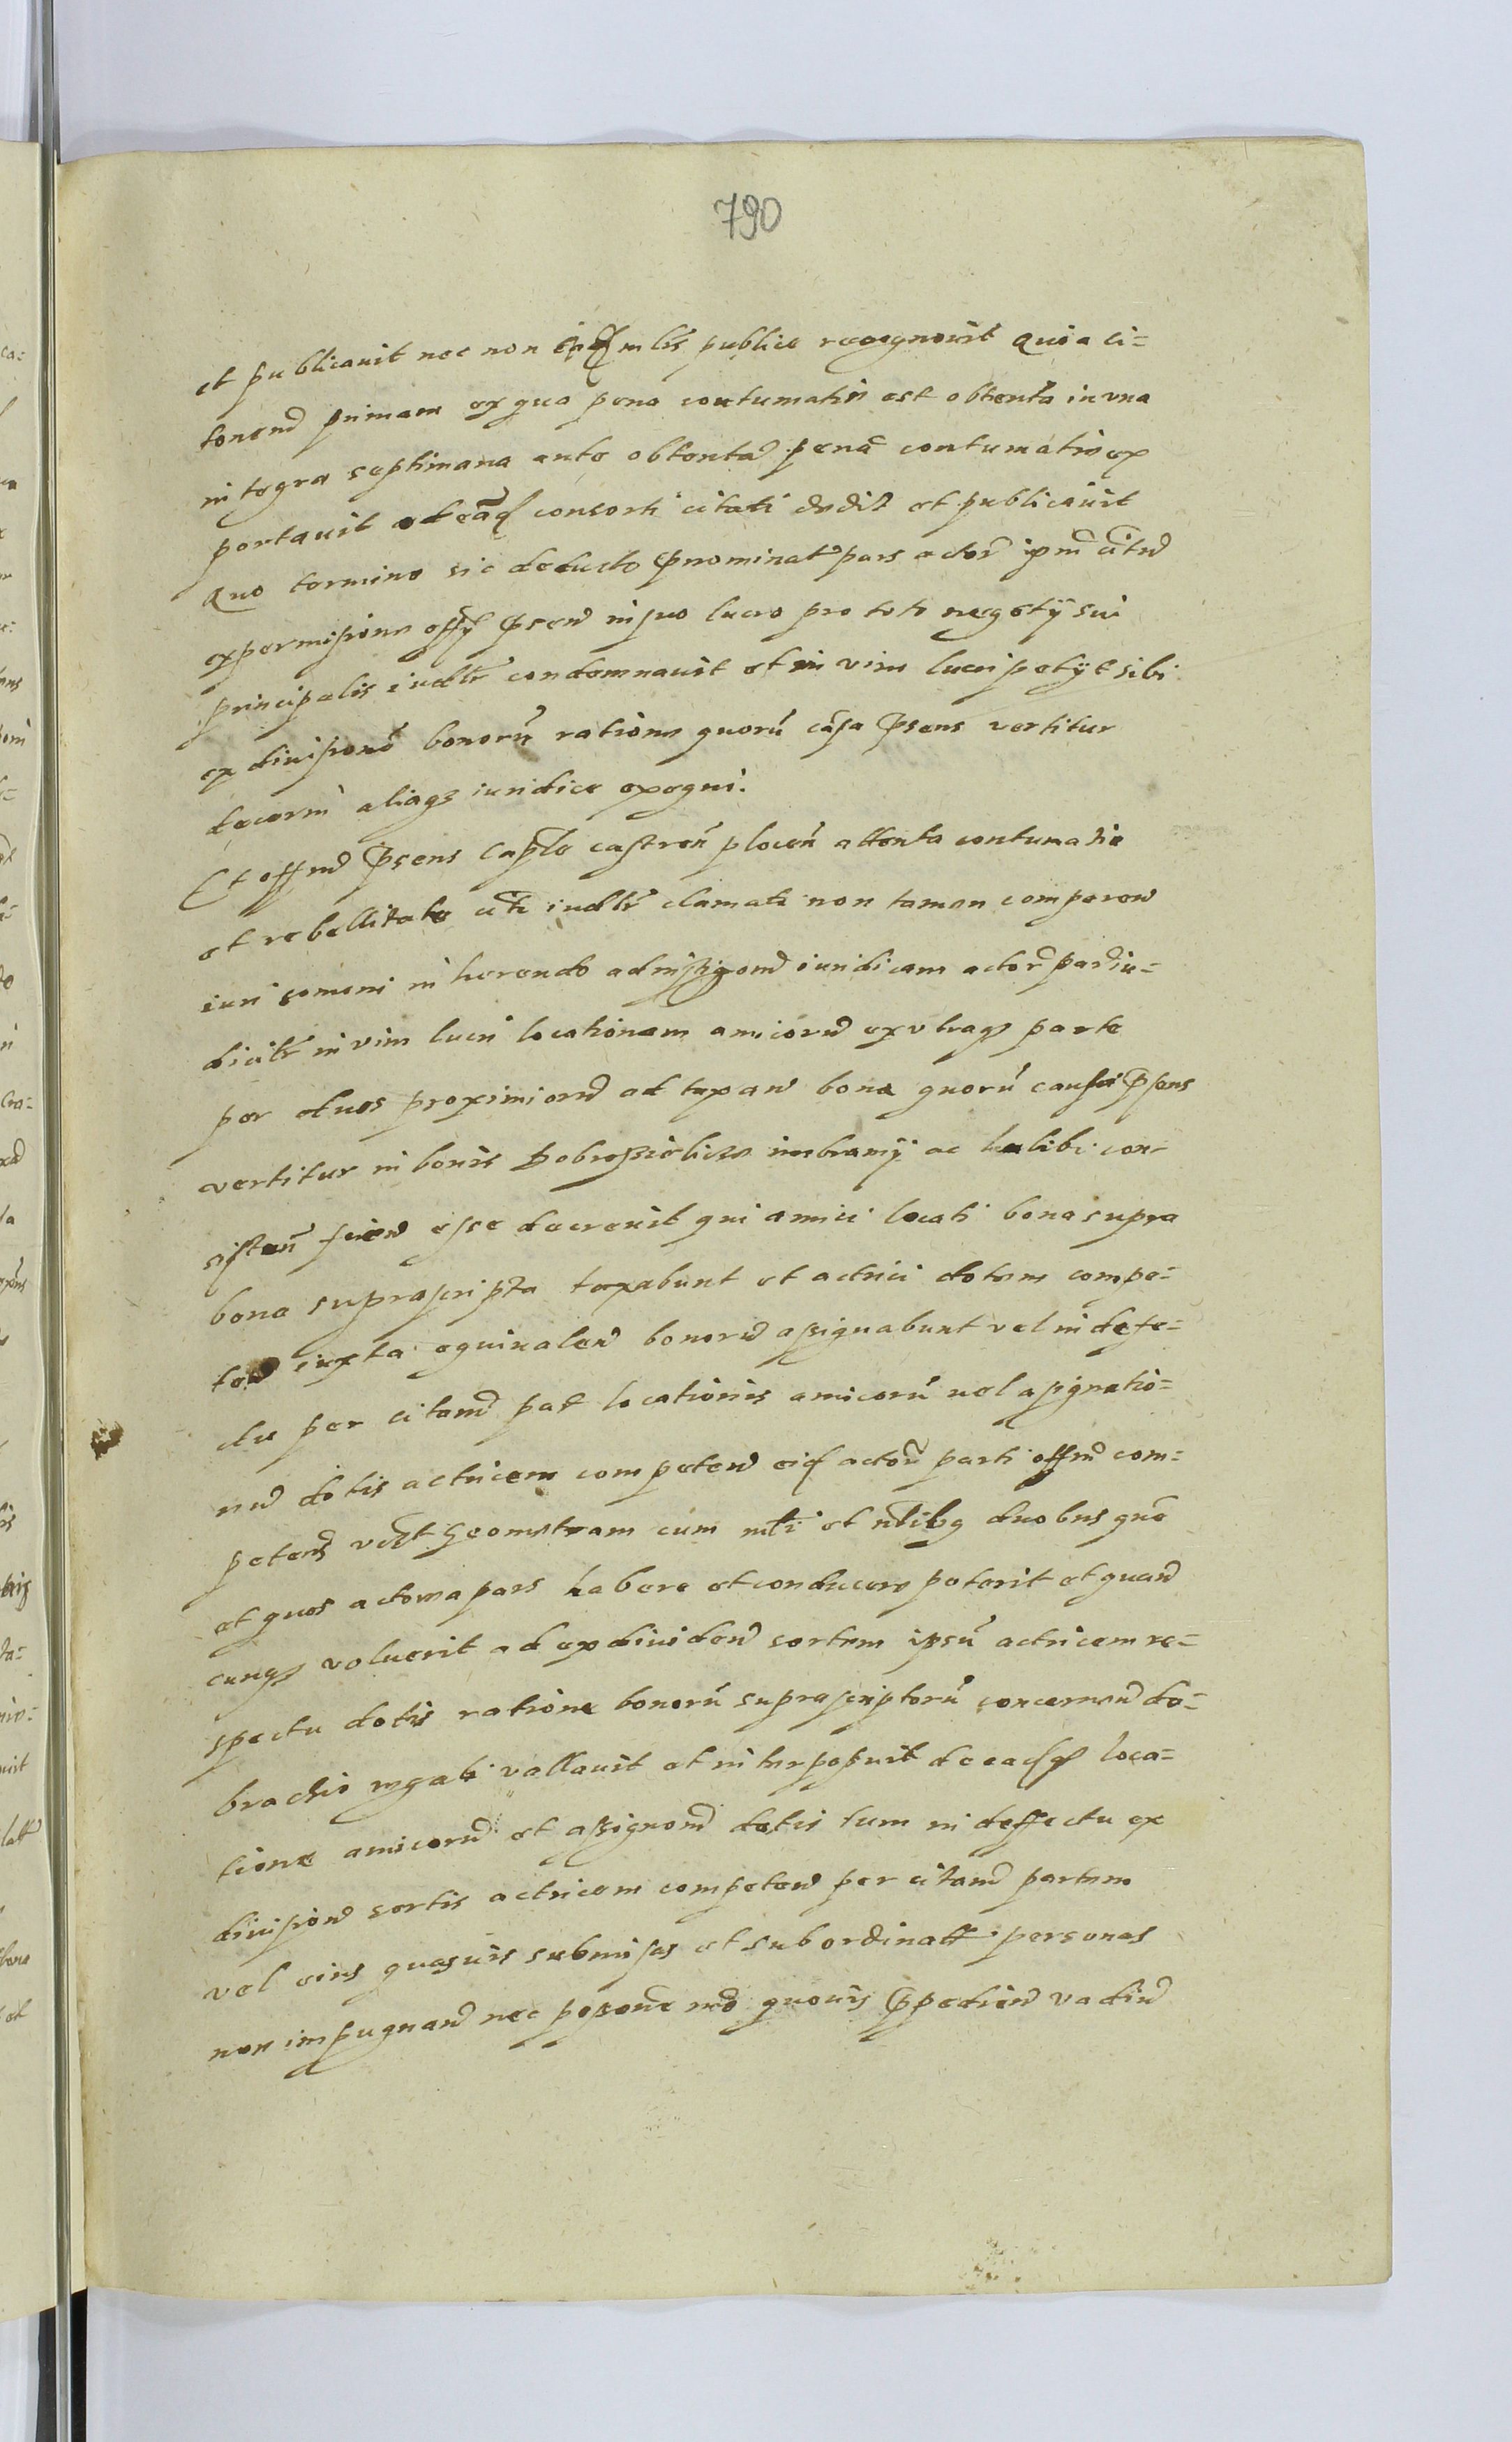 790
et publicavit nec non mltr publice recognovit Quia ci=
tonem primam ex qua pena contumatie est obtenta in una
integra septimana ante obtentam penam contumatie ex
portavit et eand consorti citati dedit et publicavit
Quo termino sic deducto pnominat pars actor ipm citud
ex permissione offy psen in suo lucro pro toto negoty sui
principalis iudltr condemnavit et in vim lucri petyt sibi
ex divisione bonorū ratione quorū causa psens vertitur
decerni aliasq iuridice exequi.
Et offm psens Caple castren plocen attenta contumatia
et rebellitate citi iudltr clamati non tamen comparen
iuri comuni in herendo ad institigonem iuridicam actor par iu=
dicitr in vim lucri locationem amicorum ex utraq parte
per duos proximiorum ad taxan bona quorū causa psens
vertitur in bonis ac ibi con
sisten fien esse decrevit qui amici locati bona supra
bona suprascripta taxabunt et actrici dotem compe=
ten iuxta equivalen bonorum assignabunt vel in defe=
ctu per citatam part locationis amicorū vel assignatio=
nem dotis actricem competen eid actor parti offm com=
petens Geometram cum mlti et nlibq duobus que
et quos actorea pars habere et conducere poterit et quan
cunq voluerit ad ex dividen sortem ipsū actricem re=
spectu dotis ratione bonorū suprascriptorū concernen do=
brachio regali vallavit et interposuit de eadq loca=
tione amicorum et assignonem dotis tum in deffectu ex
divisione sortis actricem competen per citatam partem
vel eius quasvis submissas et subordinatt personas
non impugnan nec possone mo quovis ppedien vadium